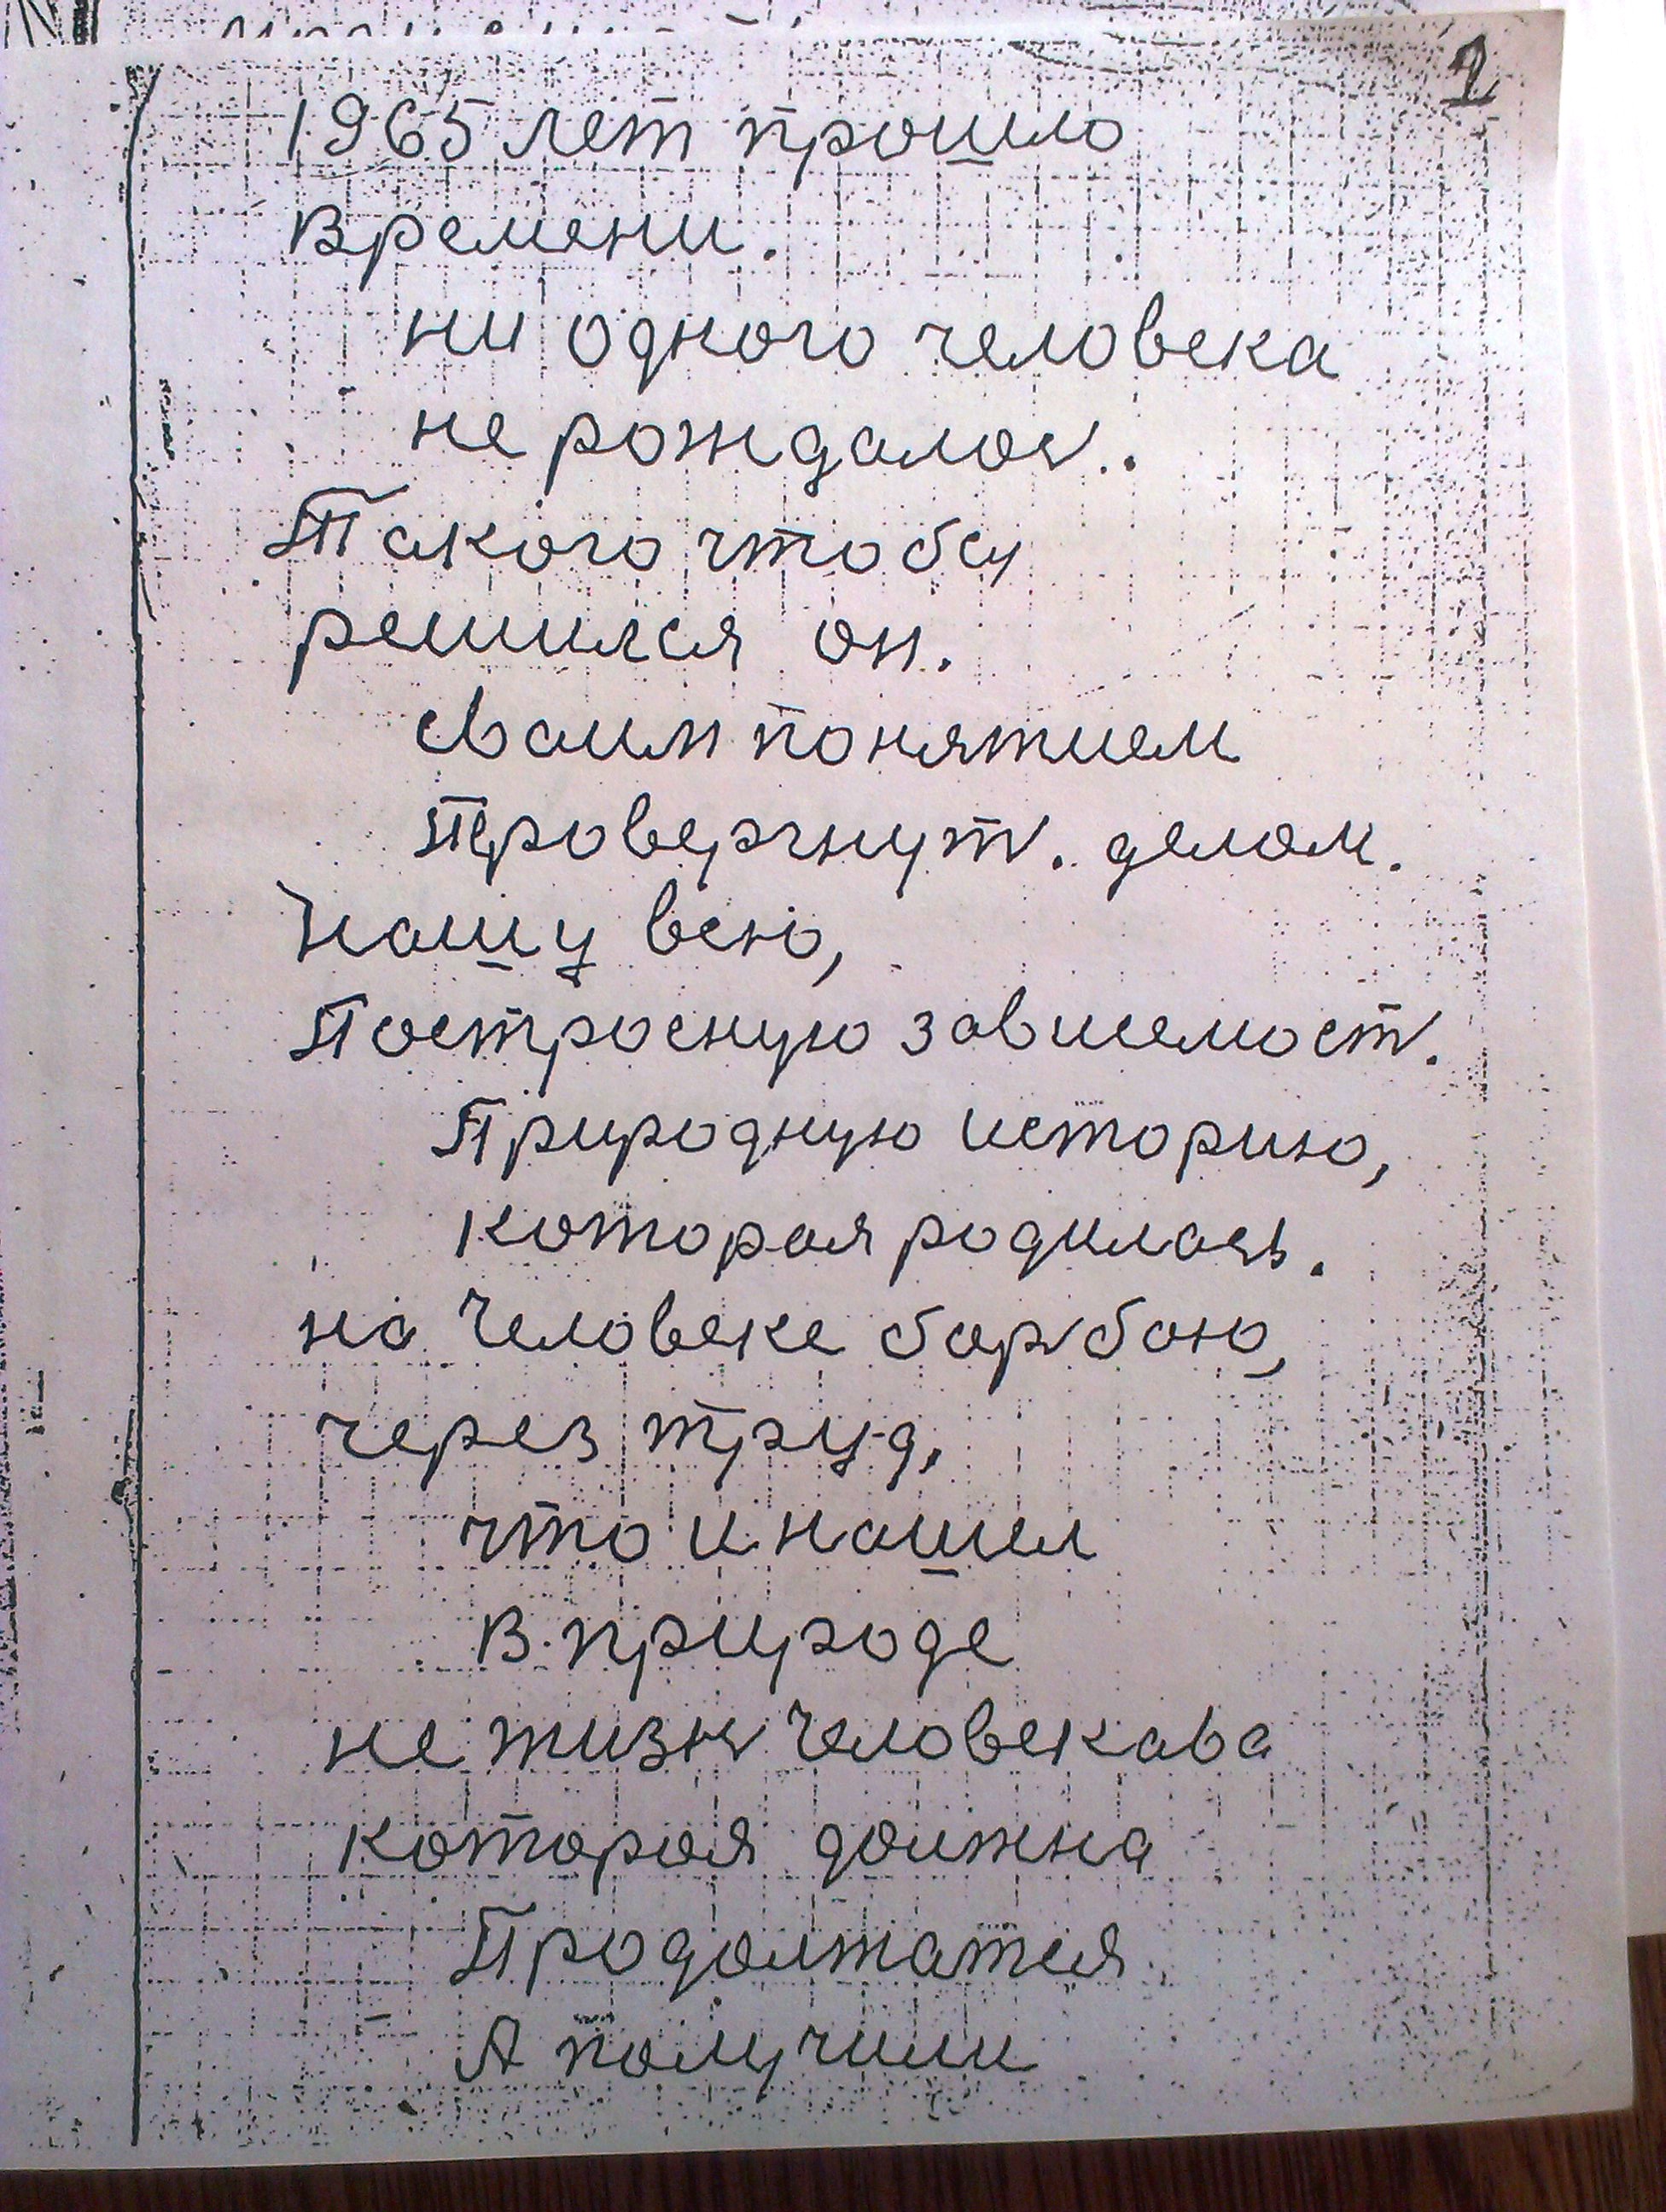 1
1965 лет прошло
времени.
ни одного человека
не рождалось.
Такого чтобы
решился он.
сваим понятием
Провергнуть. делом.
Нашу всю,
Постросную зависемость.
Природную историю,
которая родилась.
на человеке борьбою,
через труд,
что и нашел
в природе
не жизнь человекава
которая должна
Продолжатся
А получили